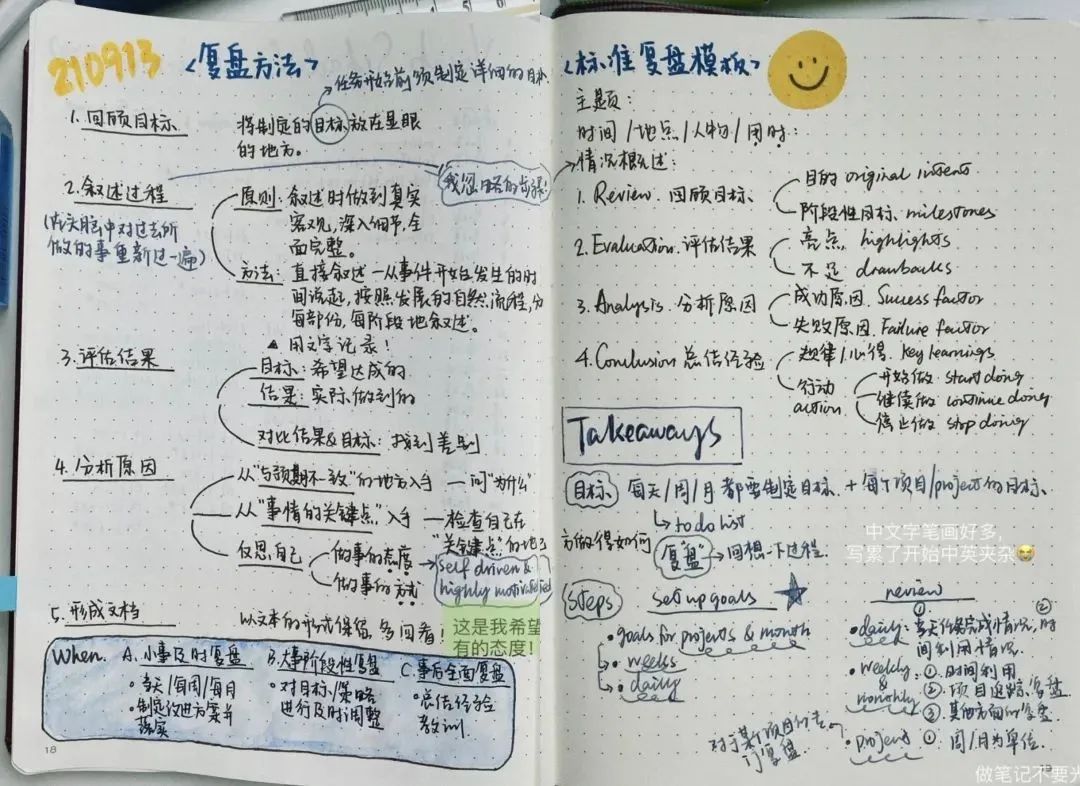 210913
<复盘方法>
任务开始前须制定详细的目标
1.回顾目标
将制定的目标放在显眼
的地方。
我忽略的步骤!
2.叙述过程
(在头脑中对过去所
做的事重新过一遍)
原则:叙述时做到真实
客观,深入细节,全
面完整。
方法:直接叙述—从事件开始发生的时
间说起,按照发展的自然流程,分
每部份,每阶段地叙述。
▲用文字记录!
3.评估结果
目标:希望达成的
结果:实际做到的
对比结果&目标:找到差别
4.分析原因
从“与预期不一致”的地方入手—问“为什么”
从“事情的关键点”入手—检查自己在
“关键点”的地
反思自己
做事的态度
做事的方式
self driven &
highly motivated
这是我希望
有的态度!
5.形成文档
以文本的形式保留,多回看!
When.
A.小事及时复盘
·每天/每周/每月
·制定改进方案并
落实
B.大事阶段性复盘
·对目标/策略
进行及时调整
C.事后全面复盘
·总结经验
教训
18
<标准复盘模板>
主题:
时间/地点/人物/用时:
情况概述:
1.Review.回顾目标
目的 original intents
阶段性目标.milestones
2.Evaluation.评估结果
亮点.highlights
不足 drawbacks
3.Analysis.分析原因
成功原因.Success factor
失败原因.Failure factor
4.Conclusion 总结经验
规律/心得.key learnings
行动
action
开始做 start doing
继续做 continue doing
停止做 stop doing
Takeaways
目标 每天/周/月都要制定目标+每个项目/project的目标.
to do list
中文字笔画好多,
写累了开始中英夹杂😭
做得如何
“复盘”→回想一下过程.
Steps
set up goals
·goals for projects & month
·weeks
·daily
review
·daily:①每天任务完成情况,②时
间利用情况.
·weekly
&
monthly
①时间利用
②项目追踪、复盘
③其他方面的复盘
·project ①周/月为单位.
对于某个项目的
复盘.
做笔记不要光